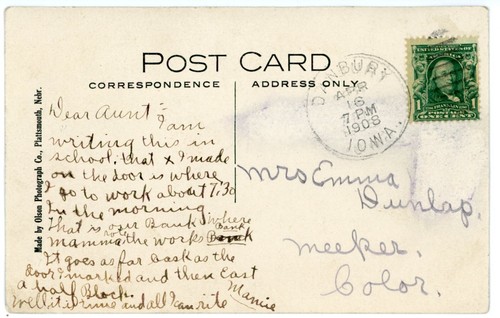 POST CARD
CORRESPONDENCE
ADDRESS ONLY
Made by Olson Photograph Co., Plattsmouth, Nebr.
Dear Aunt:-
I am
writing this in
school, that x I made
on the door is where
I go to work about 7:30
In the morning
That is our Bank where
mamma the works Bank
It goes as far back as the
door I marked and then East
a half Block.
Well it is time and all I can rite
Mamie
DANBURY
APR
16
7 PM
1908
IOWA.
UNITED STATES OF
1
ONE CENT
Mrs Emma
Dunlap.
Meeker.
Color.